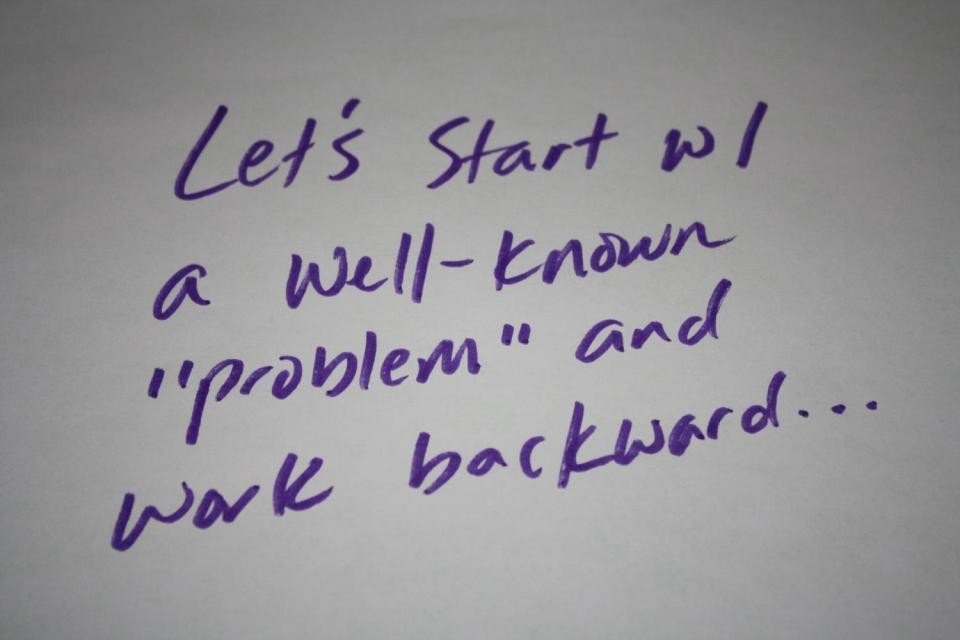 Let's Start w/
a well-known
"problem" and
work backward...